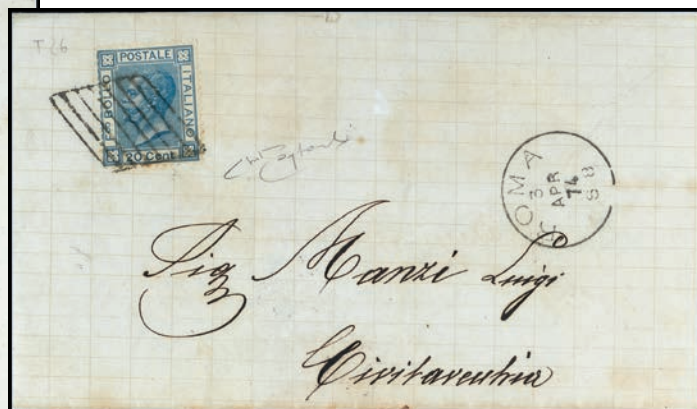 T26
BOLLO POSTALE ITALIANO
20 Cent
ROMA
3
APR
74
8 S
Sig Manzi Luigi
Civitavecchia